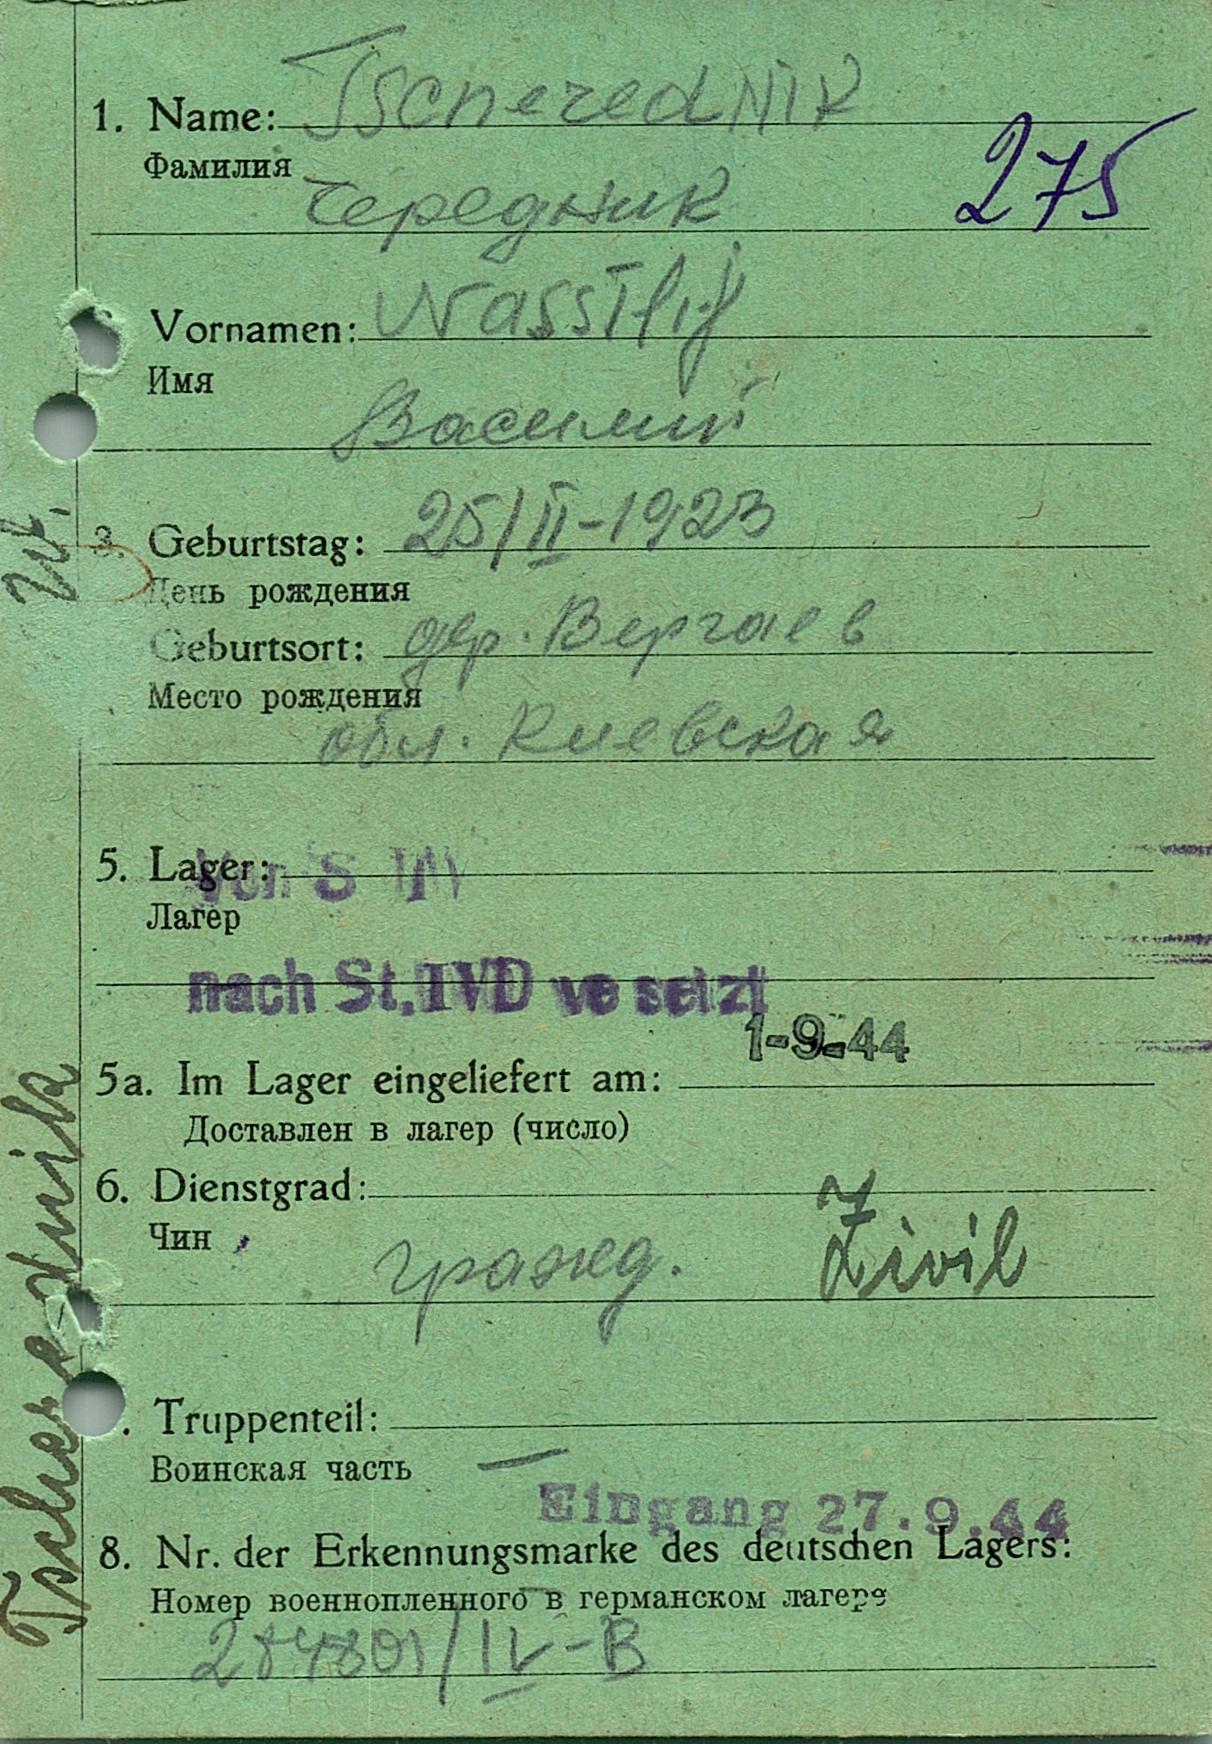 1. Name: Tscherednik
Фамилия
Чередник
275
Vornamen: Wassilij
Имя
Василий
3. Geburtstag: 25/II-1923
День рождения
Geburtsort: дер. Вергаев
Место рождения
обл. Киевская
5. Lager: Von S IV
Лагер
nach St. IVD ve setzt
1-9-44
5a. Im Lager eingeliefert am:
Доставлен в лагер (число)
6. Dienstgrad:
Чин
гражд. Zivil
. Truppenteil:
Воинская часть —
Eingang 27.9.44
8. Nr. der Erkennungsmarke des deutschen Lagers:
Номер военнопленного в германском лагере
284801/IV-B
Tscherednik W.